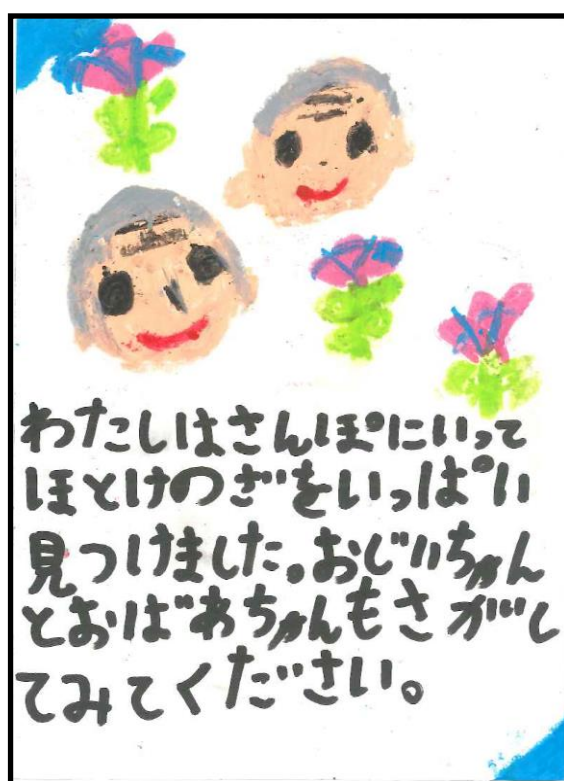 わたしはさんぽにいって
ほとけのざをいっぱい
見つけました。おじいちゃん
とおばあちゃんもさがし
てみてください。